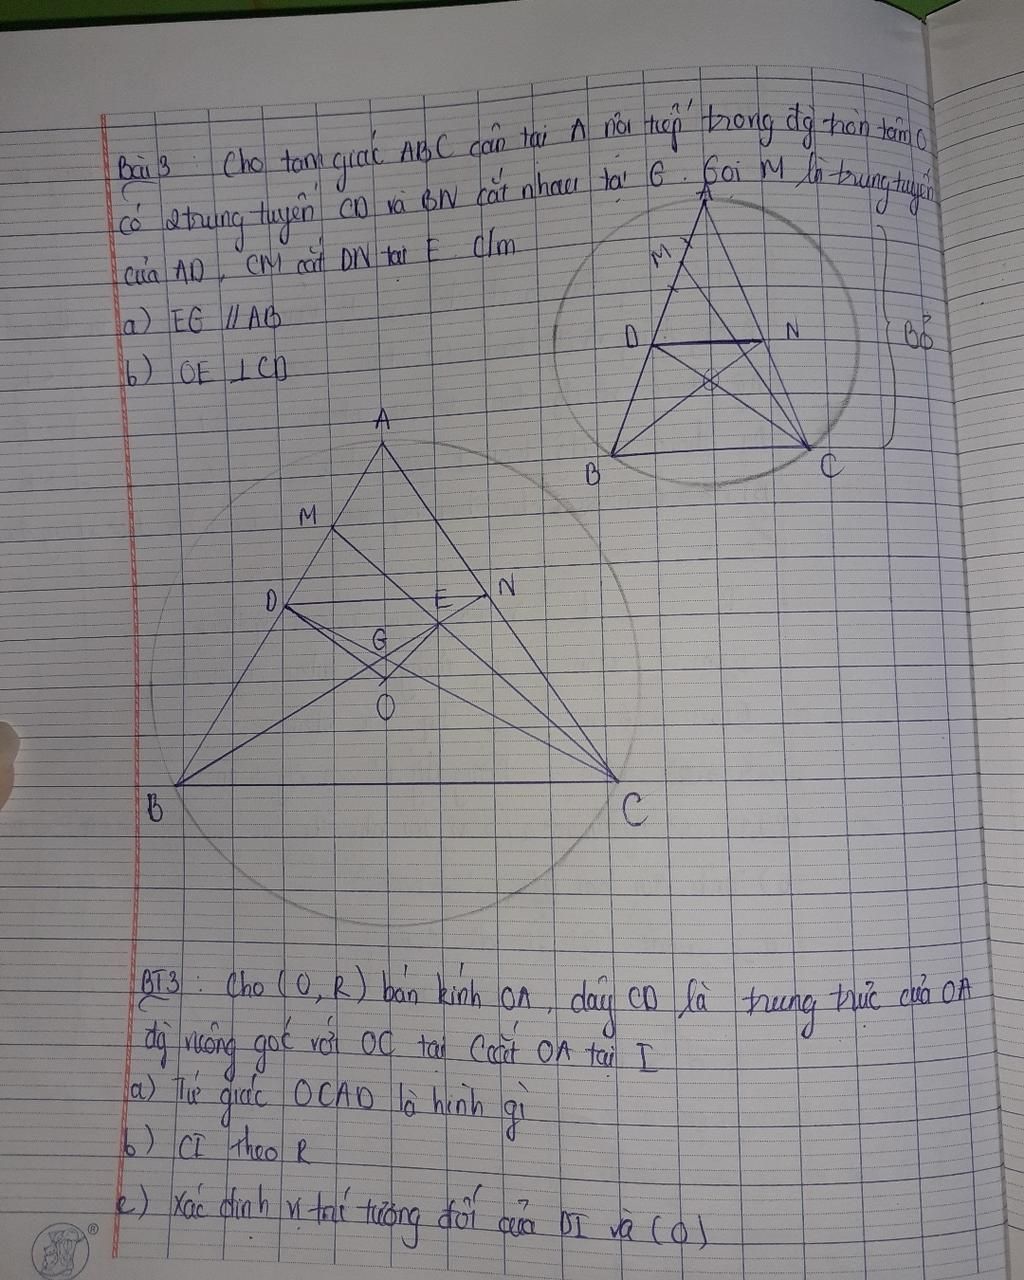 Bài 3 : Cho tam giác ABC cân tại A nội tiếp trong đg tròn tâm O
có 2 trung tuyến CD và BN cắt nhau tại G. Gọi M là trung tuyến
của AD, CM cắt DN tại E. C/m
a) EG // AB
b) OE ⊥ CD
A
M
D
N
B
C
Bỏ
A
M
D
E
N
G
O
B
C
BT3 : Cho (O, R) bán kính OA, dây CD là trung trực của OA
đg vuông góc với OC tại C cắt OA tại I
a) Tứ giác OCAD là hình gì
b) CI theo R
c) Xác định vị trí tương đối của DI và (O)
®